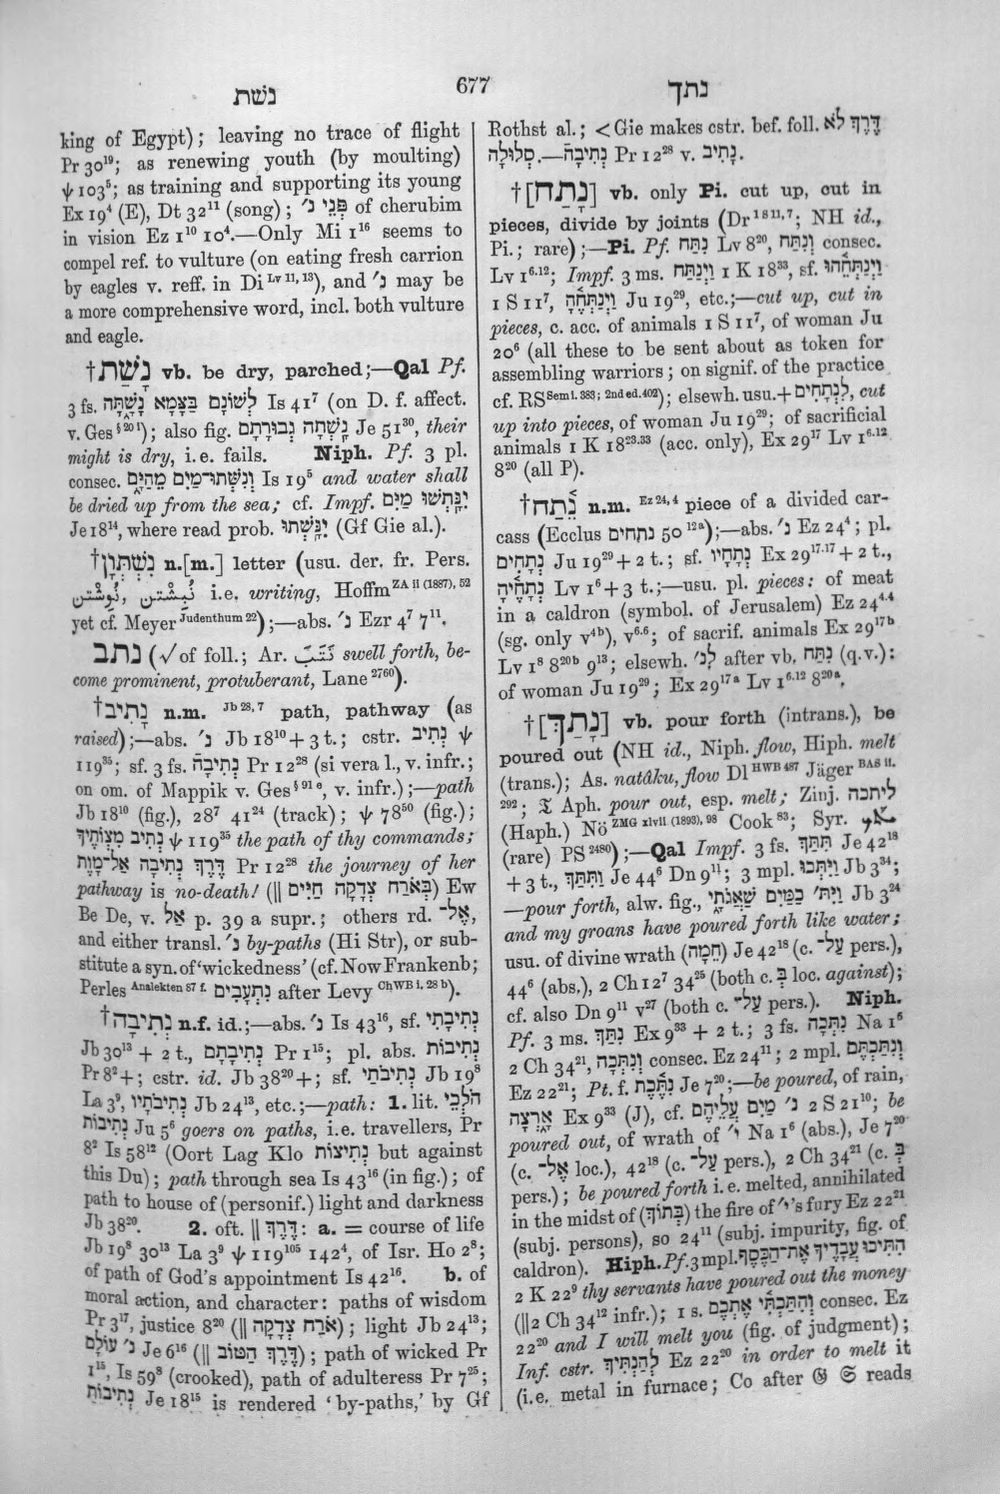 נשת
677
נתך
king of Egypt); leaving no trace of flight
Pr 30¹⁹; as renewing youth (by moulting)
ψ 103⁵; as training and supporting its young
Ex 19⁴ (E), Dt 32¹¹ (song); פְּנֵי נ׳ of cherubim
in vision Ez 1¹⁰ 10⁴.—Only Mi 1¹⁶ seems to
compel ref. to vulture (on eating fresh carrion
by eagles v. reff. in Di Lv 11, 13), and נ׳ may be
a more comprehensive word, incl. both vulture
and eagle.
†נָשַׁת vb. be dry, parched;—Qal Pf.
3 fs. לְשׁוֹנָם בַּצָּמָא נָשָׁ֑תָּה Is 41⁷ (on D. f. affect.
v. Ges § 20 i); also fig. נָֽשְׁתָה גְבוּרָתָם Je 51³⁰, their
might is dry, i.e. fails. Niph. Pf. 3 pl.
consec. וְנִשְּׁתוּ־מַיִם מֵהַיָּם Is 19⁵ and water shall
be dried up from the sea; cf. Impf. יִנָּתְשׁוּ מַיִם
Je 18¹⁴, where read prob. יִנָּשְׁתוּ (Gf Gie al.).
†נִשְׁתְּוָן n.[m.] letter (usu. der. fr. Pers.
نُبِشْتَن, نُوِشتن i.e. writing, Hoffm ZA ii (1887), 52
yet cf. Meyer Judenthum 22);—abs. נ׳ Ezr 4⁷ 7¹¹.
נתב (√of foll.; Ar. نَتَبَ swell forth, be-
come prominent, protuberant, Lane 2760).
†נָתִיב n.m. Jb 28, 7 path, pathway (as
raised);—abs. נ׳ Jb 18¹⁰ + 3 t.; cstr. נְתִיב ψ
119³⁵; sf. 3 fs. נְתִיבָהּ Pr 12²⁸ (si vera l., v. infr.;
on om. of Mappik v. Ges § 91 e, v. infr.);—path
Jb 18¹⁰ (fig.), 28⁷ 41²⁴ (track); ψ 78⁵⁰ (fig.);
נְתִיב מִצְוֹתֶיךָ ψ 119³⁵ the path of thy commands;
דֶּרֶךְ נְתִיבָה אַל־מָוֶת Pr 12²⁸ the journey of her
pathway is no-death! (‖ בְּאֹרַח צְדָקָה חַיִּים) Ew
Be De, v. אַל p. 39 a supr.; others rd. אֶל־,
and either transl. נ׳ by-paths (Hi Str), or sub-
stitute a syn. of 'wickedness' (cf. Now Frankenb;
Perles Analekten 87 f. נִתְעָבִים after Levy ChWB i. 28 b).
†נְתִיבָה n.f. id.;—abs. נ׳ Is 43¹⁶, sf. נְתִיבָתִי
Jb 30¹³ + 2 t., נְתִיבָתָם Pr 1¹⁵; pl. abs. נְתִיבוֹת
Pr 8² +; cstr. id. Jb 38²⁰ +; sf. נְתִיבֹתַי Jb 19⁸
La 3⁹, נְתִיבֹתָיו Jb 24¹³, etc.;—path: 1. lit. הֹלְכֵי
נְתִיבוֹת Ju 5⁶ goers on paths, i.e. travellers, Pr
8² Is 58¹² (Oort Lag Klo נְתִיצוֹת but against
this Du); path through sea Is 43¹⁶ (in fig.); of
path to house of (personif.) light and darkness
Jb 38²⁰. 2. oft. ‖ דֶּרֶךְ: a. = course of life
Jb 19⁸ 30¹³ La 3⁹ ψ 119¹⁰⁵ 142⁴, of Isr. Ho 2⁸;
of path of God's appointment Is 42¹⁶. b. of
moral action, and character: paths of wisdom
Pr 3¹⁷, justice 8²⁰ (‖ אֹרַח צְדָקָה); light Jb 24¹³;
נ׳ עוֹלָם Je 6¹⁶ (‖ דֶּרֶךְ הַטּוֹב); path of wicked Pr
1¹⁵, Is 59⁸ (crooked), path of adulteress Pr 7²⁵;
נְתִיבוֹת Je 18¹⁵ is rendered 'by-paths,' by Gf
Rothst al.; < Gie makes cstr. bef. foll. דֶּרֶךְ לֹא
סְלוּלָה.—נְתִיבָהּ Pr 12²⁸ v. נָתִיב.
†[נָתַח] vb. only Pi. cut up, cut in
pieces, divide by joints (Dr 1 S 11, 7; NH id.,
Pi.; rare);—Pi. Pf. נִתַּח Lv 8²⁰, וְנִתַּח consec.
Lv 1⁶·¹²; Impf. 3 ms. וַיְנַתַּח 1 K 18³³, sf. וַיְנַתְּחֵהוּ
1 S 11⁷, וַיְנַתְּחֶהָ Ju 19²⁹, etc.;—cut up, cut in
pieces, c. acc. of animals 1 S 11⁷, of woman Ju
20⁶ (all these to be sent about as token for
assembling warriors; on signif. of the practice
cf. RS Sem i. 383; 2nd ed. 402); elsewh. usu. + לִנְתָחִים, cut
up into pieces, of woman Ju 19²⁹; of sacrificial
animals 1 K 18²³·³³ (acc. only), Ex 29¹⁷ Lv 1⁶·¹²
8²⁰ (all P).
†נֵתַח n.m. Ez 24, 4 piece of a divided car-
cass (Ecclus נתחים 50 12 a);—abs. נ׳ Ez 24⁴; pl.
נְתָחִים Ju 19²⁹ + 2 t.; sf. נְתָחָיו Ex 29¹⁷·¹⁷ + 2 t.,
נְתָחֶיהָ Lv 1⁶ + 3 t.;—usu. pl. pieces: of meat
in a caldron (symbol. of Jerusalem) Ez 24⁴·⁴
(sg. only v⁴ᵇ), v⁶·⁶; of sacrif. animals Ex 29¹⁷ᵇ
Lv 1⁸ 8²⁰ᵇ 9¹³; elsewh. לִנ׳ after vb. נִתַּח (q.v.):
of woman Ju 19²⁹; Ex 29¹⁷ᵃ Lv 1⁶·¹² 8²⁰ᵃ.
†[נָתַךְ] vb. pour forth (intrans.), be
poured out (NH id., Niph. flow, Hiph. melt
(trans.); As. natâku, flow Dl HWB 487 Jäger BAS ii.
292; 𝔗 Aph. pour out, esp. melt; Zinj. ליתכה
(Haph.) Nö ZMG xlvii (1893), 98 Cook 83; Syr.
(rare) PS 2480);—Qal Impf. 3 fs. תִּתַּךְ Je 42¹⁸
+ 3 t., וַתִּתַּךְ Je 44⁶ Dn 9¹¹; 3 mpl. וַיִּתְּכוּ Jb 3²⁴;
—pour forth, alw. fig., וַיִּתּ׳ כַמַּיִם שַׁאֲגֹתַי Jb 3²⁴
and my groans have poured forth like water;
usu. of divine wrath (חֵמָה) Je 42¹⁸ (c. עַל־ pers.),
44⁶ (abs.), 2 Ch 12⁷ 34²⁵ (both c. בְּ loc. against);
cf. also Dn 9¹¹ v²⁷ (both c. עַל־ pers.). Niph.
Pf. 3 ms. נִתַּךְ Ex 9³³ + 2 t.; 3 fs. נִתְּכָה Na 1⁶
2 Ch 34²¹, וְנִתְּכָה consec. Ez 24¹¹; 2 mpl. וְנִתַּכְתֶּם
Ez 22²¹; Pt. f. נִתֶּכֶת Je 7²⁰;—be poured, of rain,
אָ֑רְצָה Ex 9³³ (J), cf. נ׳ מַיִם עֲלֵיהֶם 2 S 21¹⁰; be
poured out, of wrath of י׳ Na 1⁶ (abs.), Je 7²⁰
(c. אֶל־ loc.), 42¹⁸ (c. עַל־ pers.), 2 Ch 34²¹ (c. בְּ
pers.); be poured forth i. e. melted, annihilated
in the midst of (בְּתוֹךְ) the fire of י׳'s fury Ez 22²¹
(subj. persons), so 24¹¹ (subj. impurity, fig. of
caldron). Hiph. Pf. 3 mpl. הִתִּיכוּ עֲבָדֶיךָ אֶת־הַכֶּסֶף
2 K 22⁹ thy servants have poured out the money
(‖ 2 Ch 34¹² infr.); 1 s. וְהִתַּכְתִּי אֶתְכֶם consec. Ez
22²⁰ and I will melt you (fig. of judgment);
Inf. cstr. לְהַנְתִּיךְ Ez 22²⁰ in order to melt it
(i.e. metal in furnace; Co after 𝔊 𝔖 reads